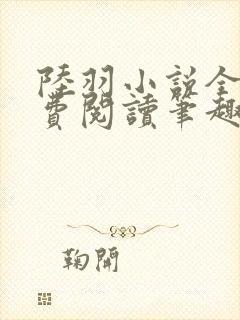 陸羽小說全
費閱讀筆趣
鞠開